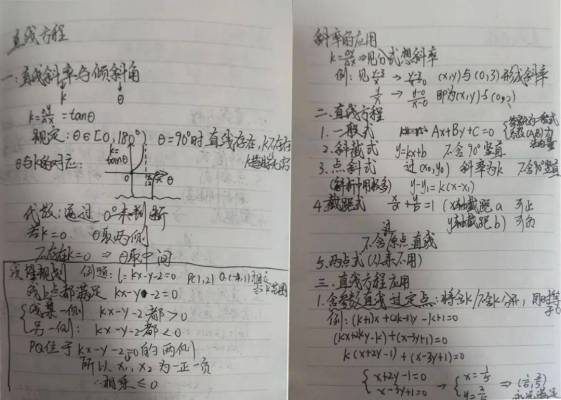 直线方程
一.直线斜率与倾斜角
k θ
k=Δy/Δx=tanθ
规定:θ∈[0,180°) θ=90°时直线存在,k不存在
θ与k的对应:
k=tanθ
代数:通过 0°来判断
若k=0 θ取两侧
不存在k=0 ⇒ θ取中间
线性规划 例题:l:kx-y-2=0
线上点都满足 kx-y-2=0
线某一侧 kx-y-2都>0
另一侧:kx-y-2都<0
PQ位于kx-y-2=0的两侧
所以 x₁,x₂为一正一负
相乘≤0
斜率的应用
k=Δy/Δx⇒见分式想斜率
例:见 → (x,y)与(0,3)形成斜率
→ y-0/x-0 即为(x,y)与
二.直线方程
1.一般式 Ax+By+C=0
2.斜截式 y=kx+b 不含90°竖直
3.点斜式 过(x₀,y₀) 斜率为k 不含90°竖直
y-y₁=k(x-x₁)
4.截距式 x/a+y/b=1 (x轴截距a
y轴截距b)
不含原点直线
5.两点式(从来不用)
三.直线方程应用
1.含参数直线过定点:将含k/不含k分开,同时等于0
例:(k+1)x+(2k-3)y-k+1=0
(kx+2ky-k)+(x-3y+1)=0
k(x+2y-1)+(x-3y+1)=0
x+2y-1=0
x-3y+1=0 → x=1/5
y=2/5 ⇒ (1/5,2/5)